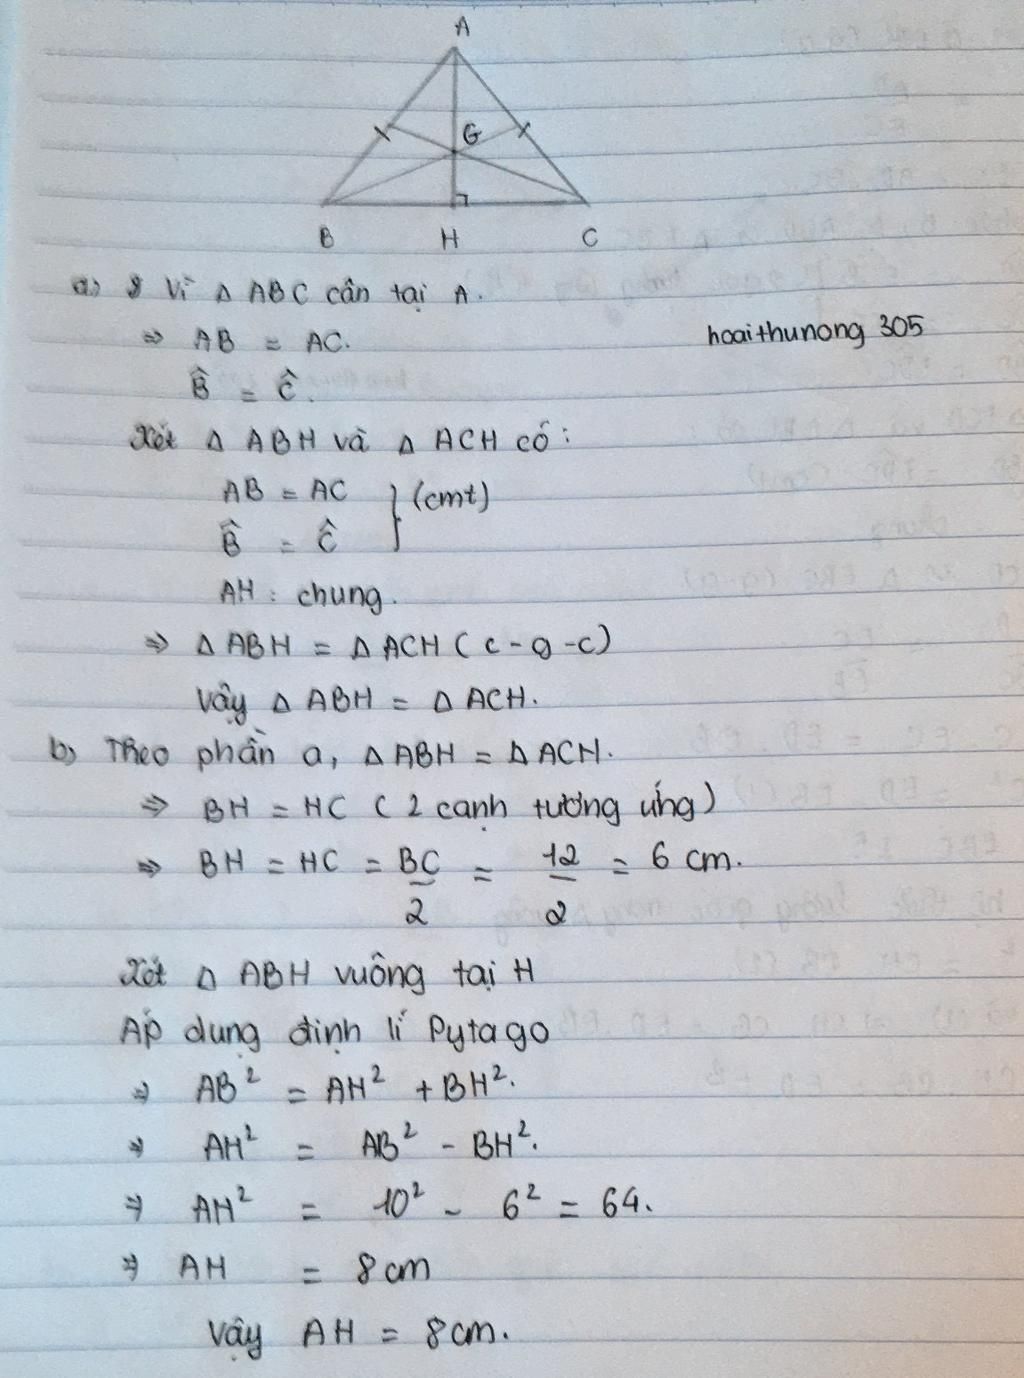 A
G
B H C
a) Vì Δ ABC cân tại A.
⇒ AB = AC.
hoaithunong 305
B̂ = Ĉ.
Xét Δ ABH và Δ ACH có:
AB = AC } (cmt)
B̂ = Ĉ
AH : chung.
⇒ Δ ABH = Δ ACH ( c - g - c)
Vậy Δ ABH = Δ ACH.
b) Theo phần a, Δ ABH = Δ ACH.
⇒ BH = HC ( 2 cạnh tương ứng)
⇒ BH = HC = BC/2 = 12/2 = 6 cm.
Xét Δ ABH vuông tại H
Áp dụng định lí Pytago
⇒ AB² = AH² + BH².
⇒ AH² = AB² - BH².
⇒ AH² = 10² - 6² = 64.
⇒ AH = 8 cm
Vậy AH = 8 cm.